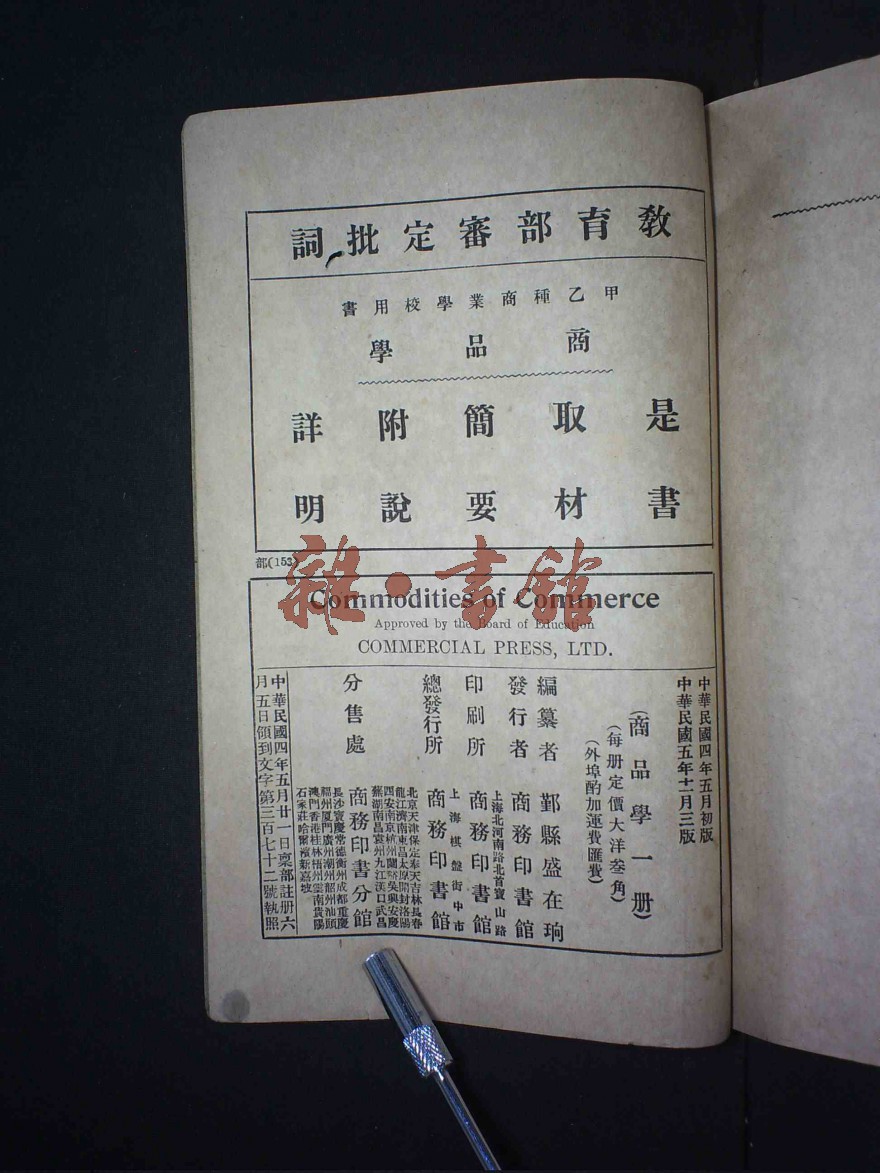 教育部審定批詞
甲乙種商業學校用書
商品學
是書
取材
簡要
附說
詳明
部(153)
雜·書館
Commodities of Commerce
Approved by the Board of Education
COMMERCIAL PRESS, LTD.
中華民國四年五月初版
中華民國五年十二月三版
(商品學一册)
(每册定價大洋叁角)
(外埠酌加運費匯費)
編纂者 鄞縣盛在珦
發行者 商務印書館
上海北河南路北首寶山路
印刷所 商務印書館
上海棋盤街中市
總發行所 商務印書館
分售處 商務印書分館
北京天津保定奉天吉林長春
龍江濟南東昌太原開封洛陽
西安南京杭州蘭谿吳興安慶
蕪湖南昌袁州九江漢口武昌
長沙寶慶常德衡州成都重慶
福州厦門廣州潮州韶州汕頭
澳門香港桂林梧州雲南貴陽
石家莊哈爾濱新嘉坡
中華民國四年五月廿一日禀部註册六
月五日領到文字第三百七十二號執照